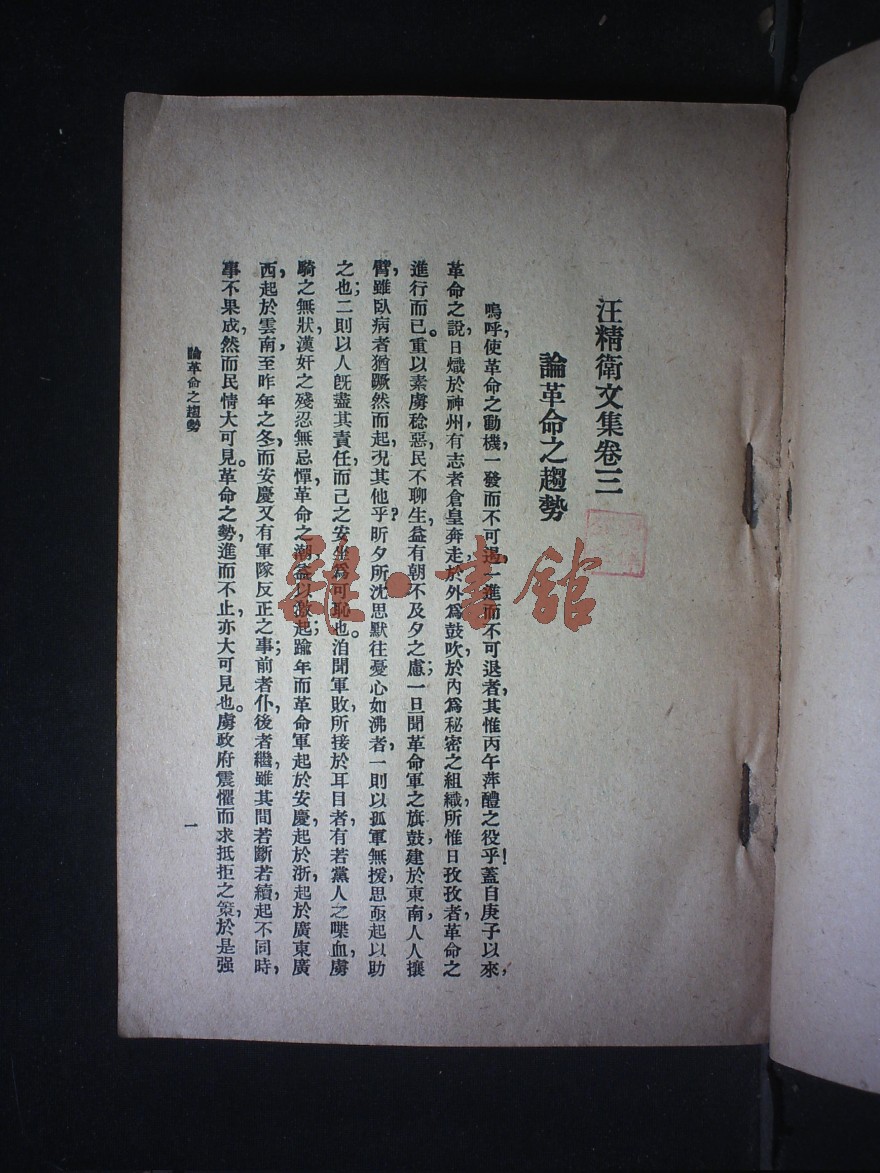 汪精衛文集卷三
論革命之趨勢
嗚呼,使革命之動機,一發而不可遏,一進而不可退者,其惟丙午萍醴之役乎!蓋自庚子以來,
革命之說,日熾於神州,有志者倉皇奔走,於外爲鼓吹,於內爲秘密之組織,所惟日孜孜者,革命之
進行而已。重以素虜稔惡,民不聊生,益有朝不及夕之慮;一旦聞革命軍之旗鼓,建於東南,人人攘
臂,雖臥病者猶蹶然而起,况其他乎?昕夕所沈思默往,憂心如沸者,一則以孤軍無援,思亟起以助
之也;二則以人旣盡其責任,而己之安坐爲可恥也。洎聞軍敗,所接於耳目者,有若黨人之喋血,虜
騎之無狀,漢奸之殘忍無忌憚,革命之潮,益以激起;踰年而革命軍起於安慶,起於浙,起於廣東廣
西,起於雲南,至昨年之冬,而安慶又有軍隊反正之事;前者仆,後者繼,雖其間若斷若續,起不同時,
事不果成,然而民情大可見。革命之勢,進而不止,亦大可見也。虜政府震懼而求抵拒之策,於是强
論革命之趨勢
一
雜·書館